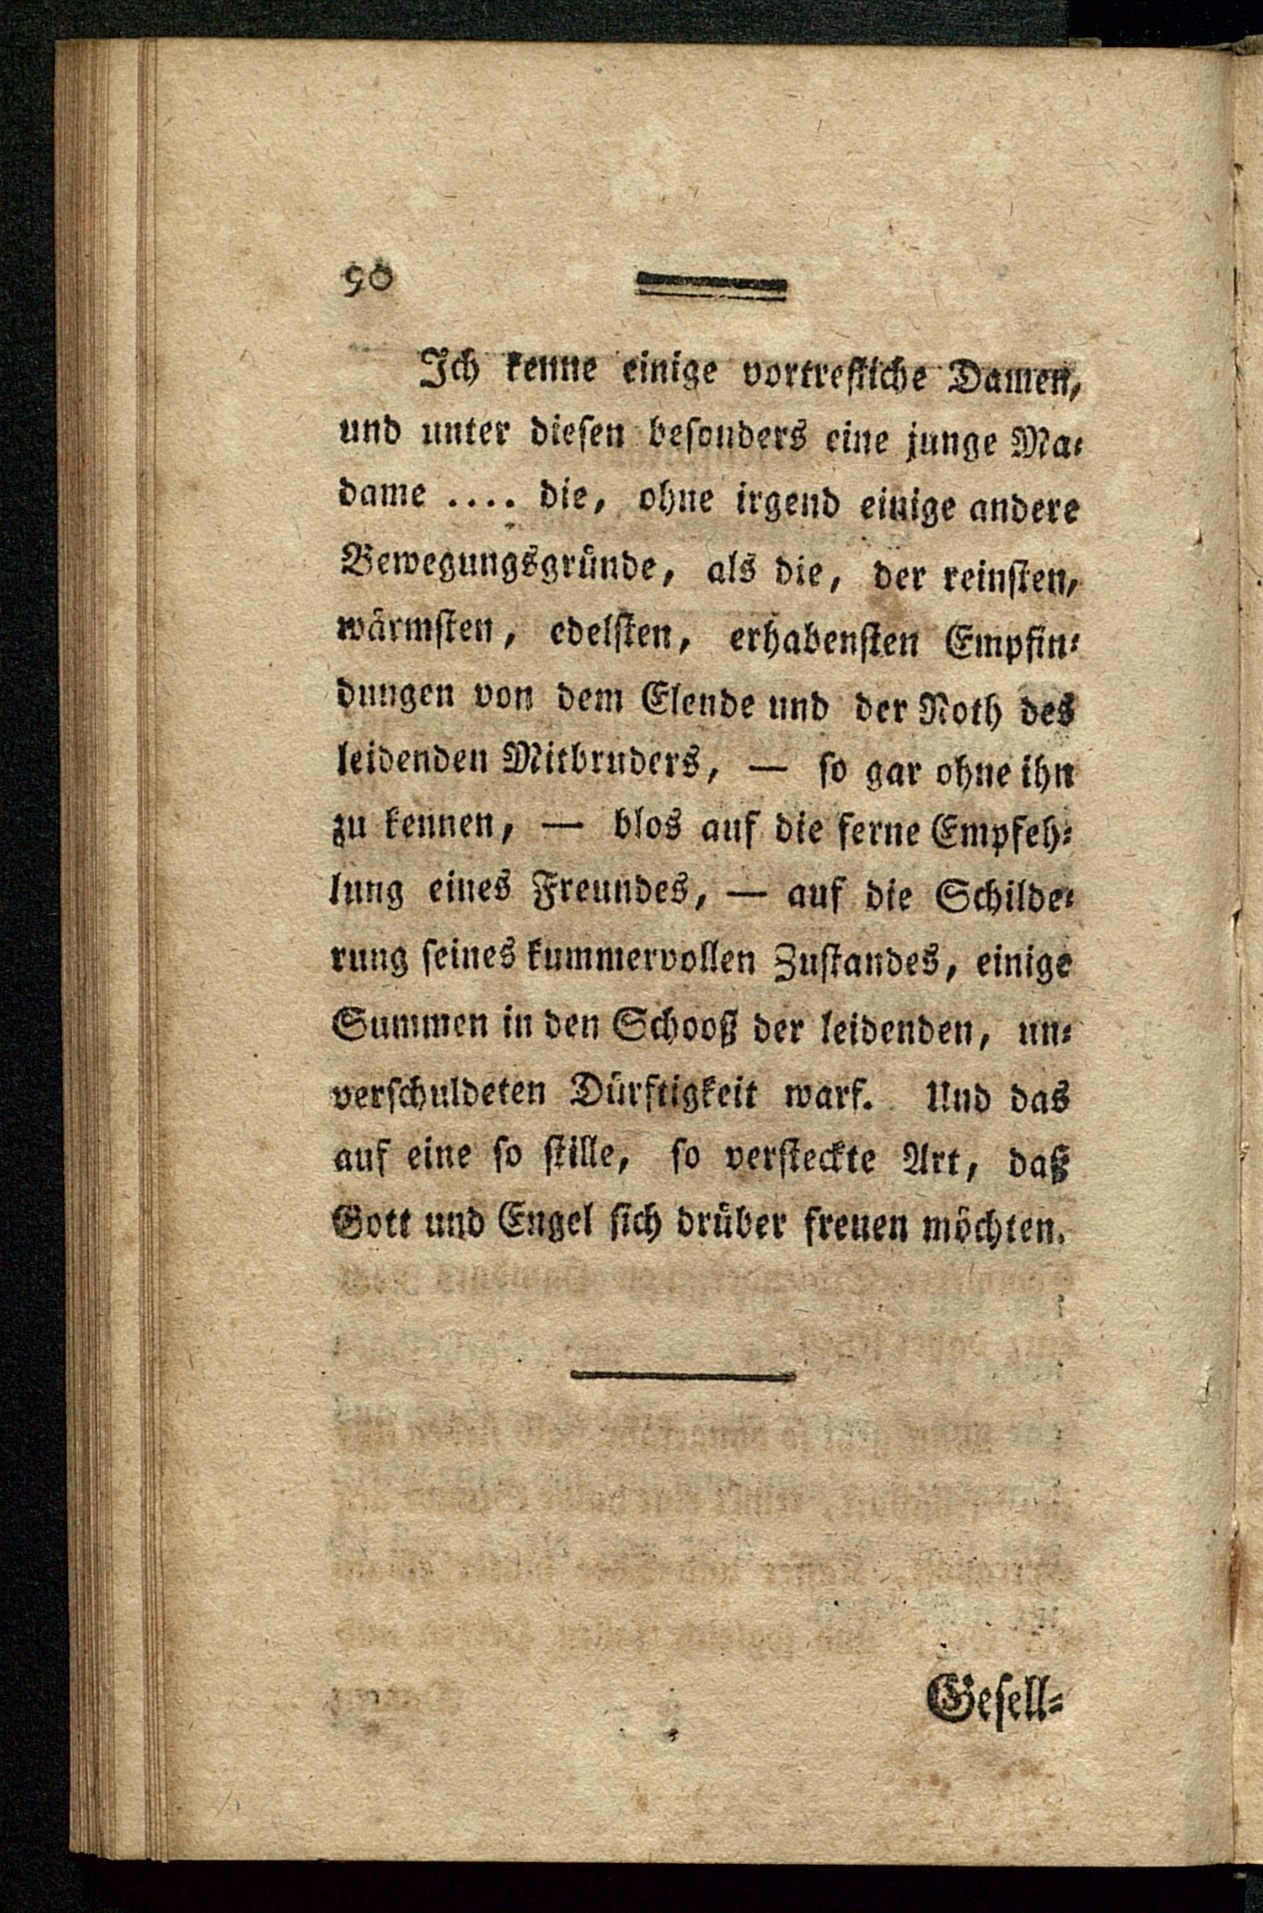 90
Ich kenne einige vortrefliche Damen,
und unter diesen besonders eine junge Ma⸗
dame .... die, ohne irgend einige andere
Bewegungsgründe, als die, der reinsten,
wärmsten, edelsten, erhabensten Empfin⸗
dungen von dem Elende und der Noth des
leidenden Mitbruders, — so gar ohne ihn
zu kennen, — blos auf die ferne Empfeh⸗
lung eines Freundes, — auf die Schilde⸗
rung seines kummervollen Zustandes, einige
Summen in den Schooß der leidenden, un⸗
verschuldeten Dürftigkeit warf. Und das
auf eine so stille, so versteckte Art, daß
Gott und Engel sich drüber freuen möchten.
Gesell⸗